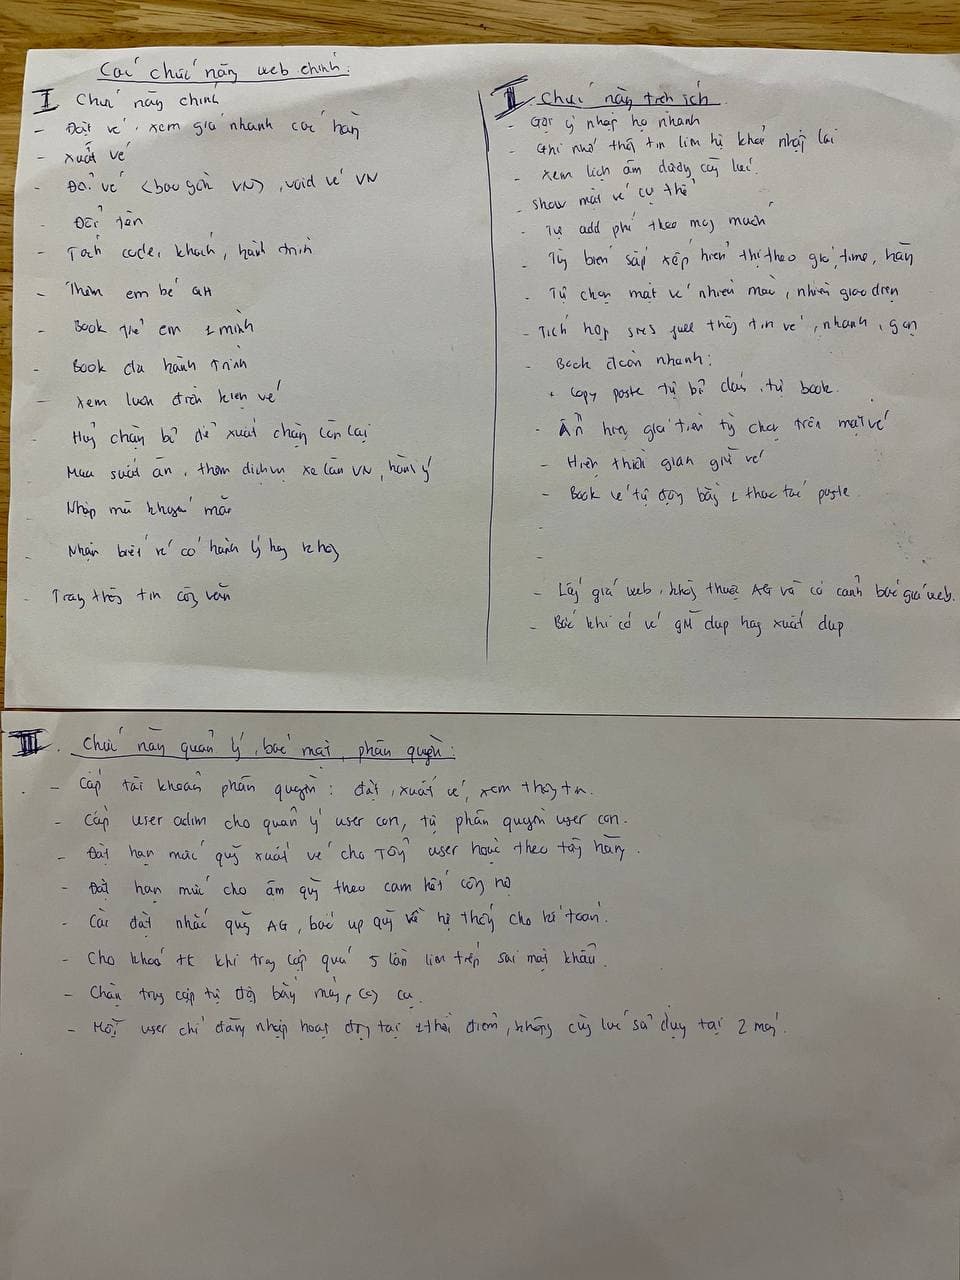 Các chức năng web chính:
I Chức năng chính
- Đặt vé, xem giá nhanh các hãng
- Xuất vé
- Đổi vé <bao gồm VN>, void vé VN
Đổi tên
- Tách code, khách, hành trình
- Thêm em bé QH
- Book trẻ em 1 mình
- Book đa hành trình
- Xem luôn điều kiện vé
- Huỷ chặng bỏ để xuất chặng còn lại
- Mua suất ăn, thêm dịch vụ xe lăn VN, hành lý
- Nhập mã khuyến mãi
- Nhận biết vé có hành lý hay không
- Trang thông tin công văn
II Chức năng tiện ích
- Gợi ý nhập họ nhanh
- Ghi nhớ thông tin liên hệ khỏi nhập lại
- Xem lịch âm dương cùng lúc.
- Show mặt vé cụ thể
- Tự add phí theo mong muốn
- Tùy biến sắp xếp hiển thị theo giá, time, hãng
- Tự chọn mặt vé nhiều màu, nhiều giao diện
- Tích hợp SMS full thông tin vé, nhanh, gọn
- Book đoàn nhanh:
+ Copy paste tự bỏ dấu, tự book.
- Ẩn hiện giá tiền tùy chọn trên mặt vé
- Hiện thời gian giữ vé
- Book vé tự động bằng 1 thao tác paste.
-
-
- Lấy giá web, không thuộc AG và có cảnh báo giá web.
- Báo khi có vé giữ dup hay xuất dup
III. Chức năng quản lý, bảo mật, phân quyền:
- Cấp tài khoản phân quyền: đặt, xuất vé, xem thông tin.
- Cấp user adim cho quản lý user con, tự phân quyền user con.
- Đặt hạn mức quỹ xuất vé cho từng user hoặc theo từng hãng.
- Đặt hạn mức cho âm quỹ theo cam kết công nợ
- Cài đặt nhắc quỹ AG, báo up quỹ về hệ thống cho kế toán.
- Cho khoá tk khi truy cập quá 5 lần liên tiếp sai mật khẩu.
- Chặn truy cập tự động bằng máy, công cụ.
- Mỗi user chỉ đăng nhập hoạt động tại 1 thời điểm, không cùng lúc sử dụng tại 2 máy.